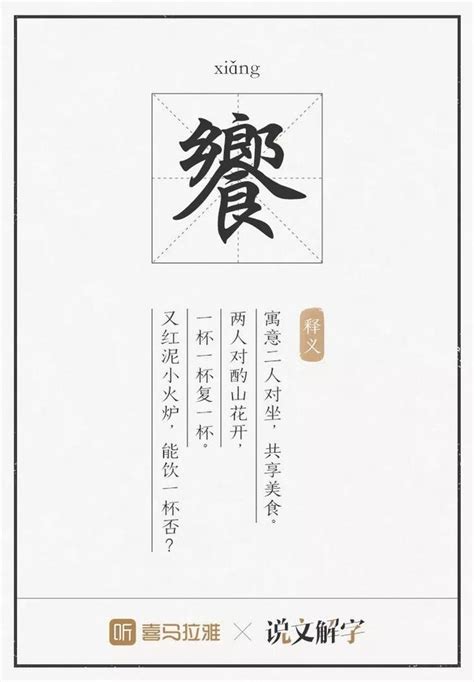 xiǎng
饗
释义
寓意二人对坐，共享美食。
两人对酌山花开，
一杯一杯复一杯。
又红泥小火炉，能饮一杯否？
听 喜马拉雅 × 说文解字